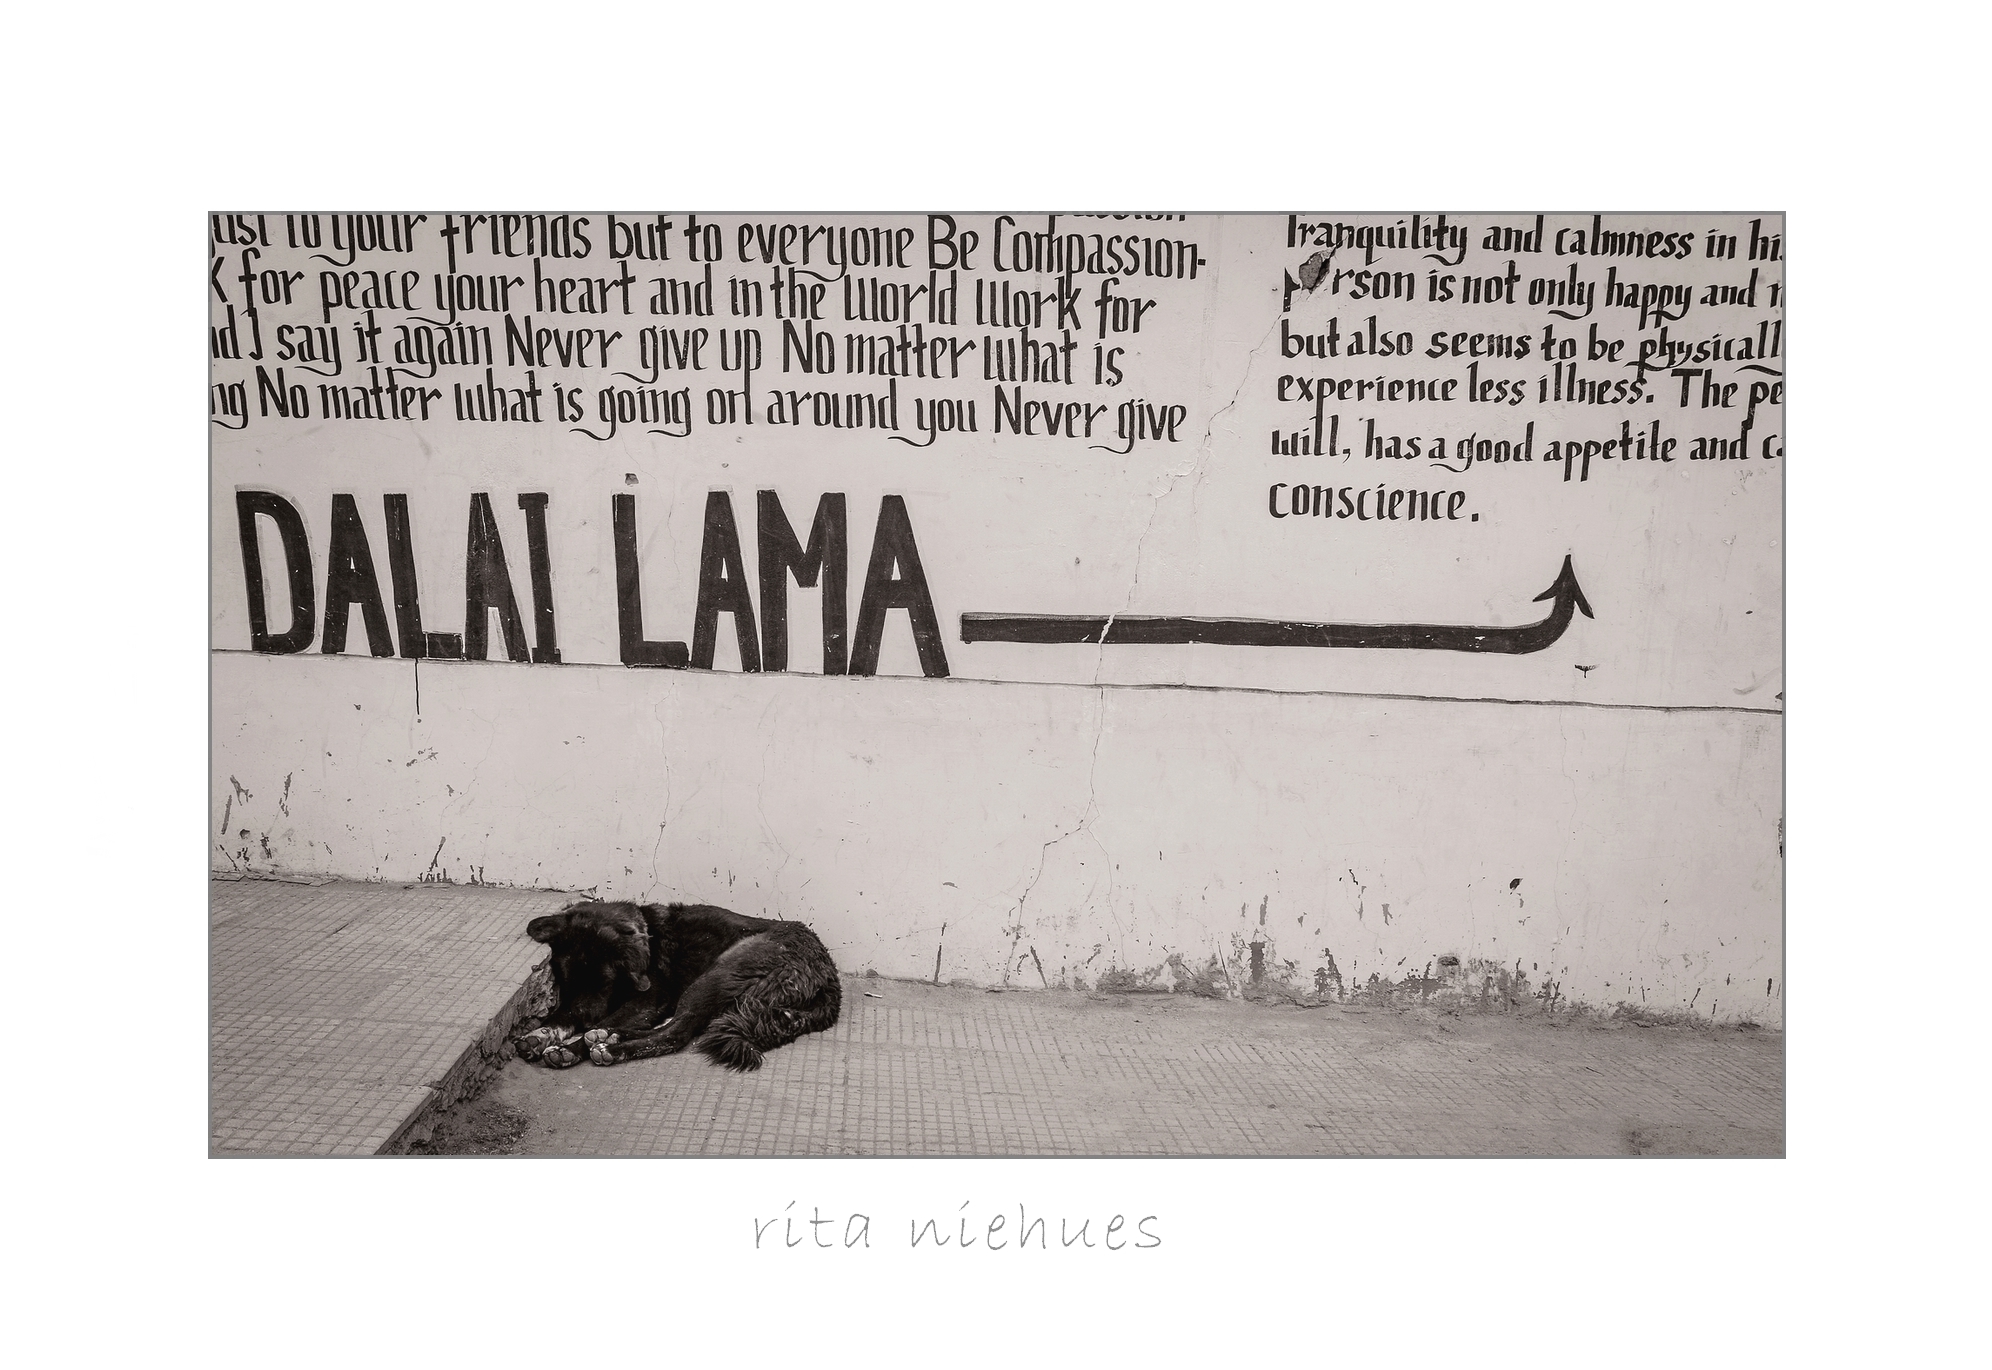 to your friends but to everyone Be Compassion-
for peace your heart and in the World Work for
I say it again Never give up No matter what is
No matter what is going on around you Never give
DALAI LAMA
Tranquility and calmness in
is not only happy and
but also seems to be
experience less illness. The
will, has a good appetite and
conscience.
rita niehues